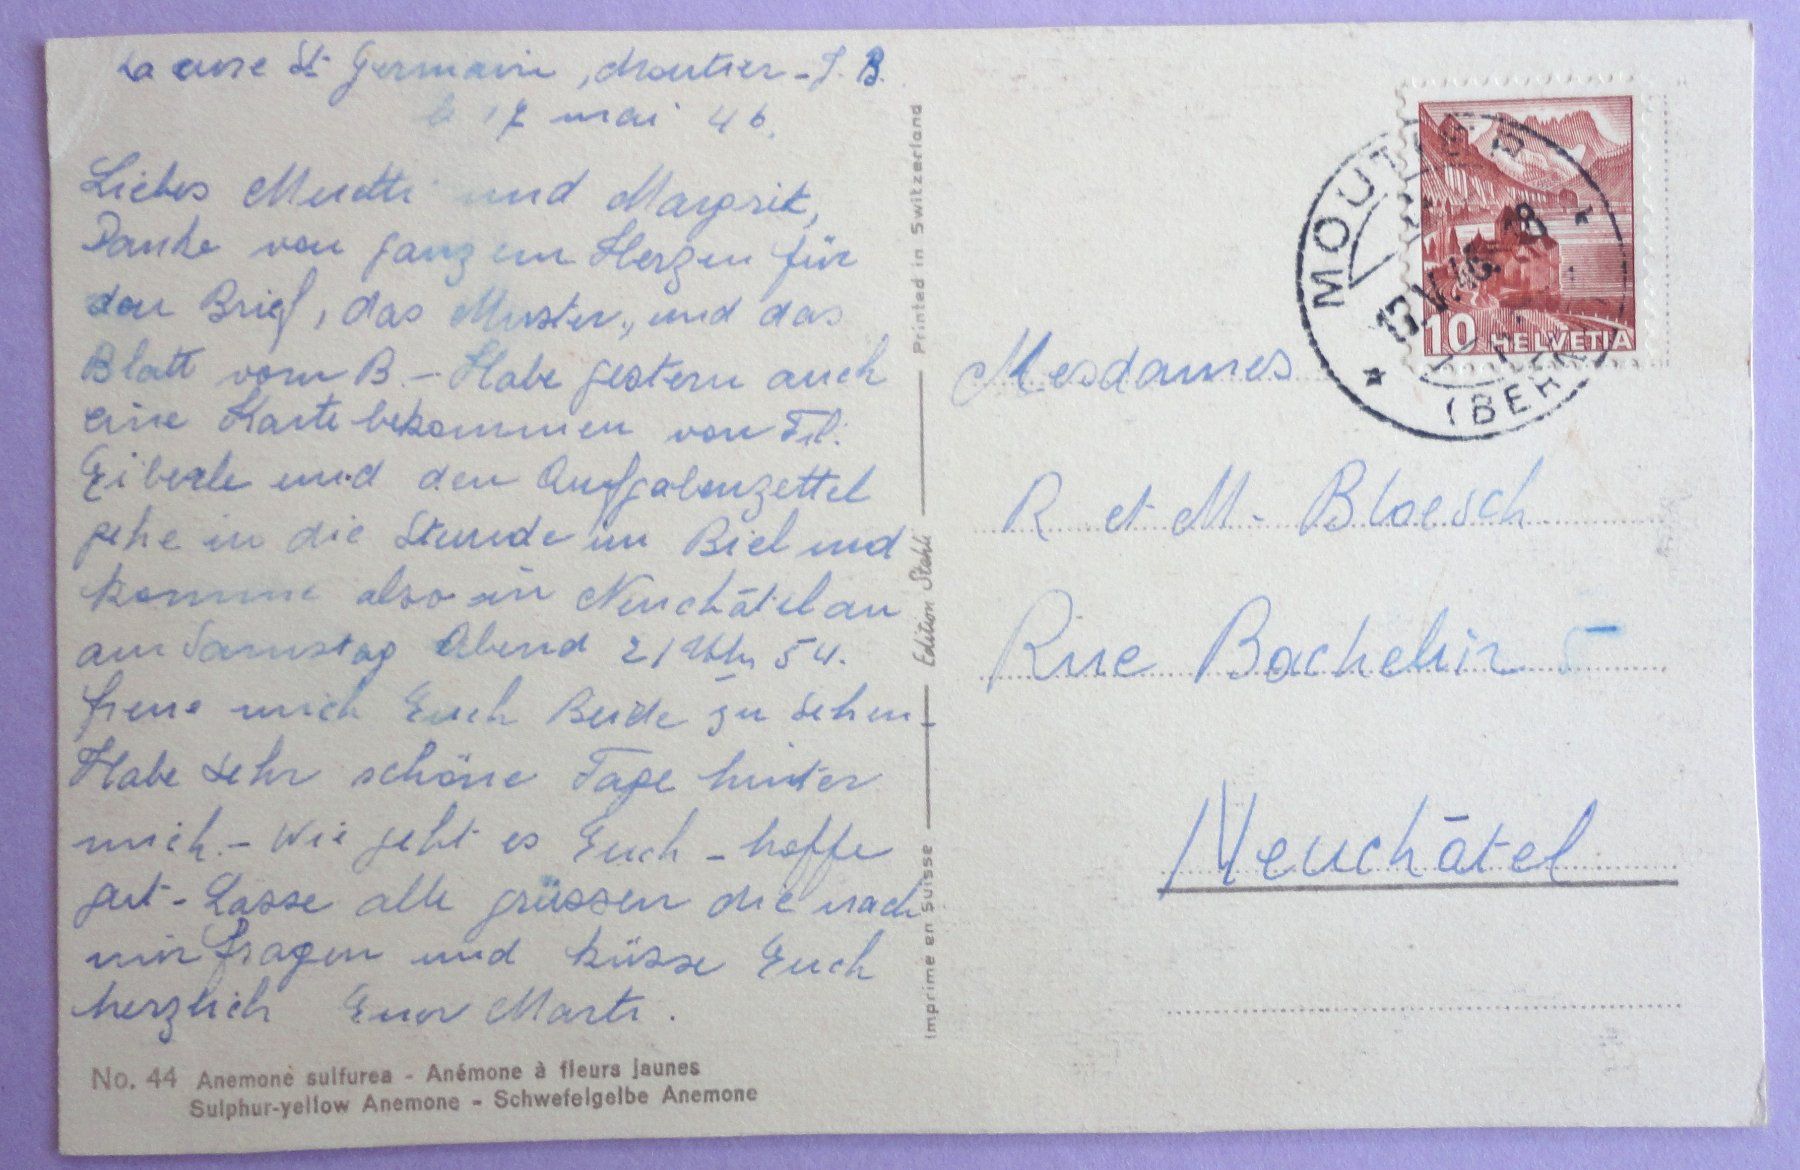 La cure St Germain, Moutier - J. B.
le 17 mai 46.
Liebes Muetti und Margrit,
Danke von ganzem Herzen für
den Brief, das Muster, und das
Blatt vom B. - Habe gestern auch
eine Karte bekommen von Frl.
Eiberle und den Aufgabenzettel
gehe in die Stunde in Biel und
komme also in Neuchâtel an
am Samstag Abend 21 Uhr 54.
freue mich Euch Beide zu sehen -
Habe sehr schöne Tage hinter
mich. - Wie geht es Euch - hoffe
gut - Lasse alle grüssen die nach
mir fragen und küsse Euch
herzlich Euer Marti.
No. 44 Anemone sulfurea - Anémone à fleurs jaunes
Sulphur-yellow Anemone - Schwefelgelbe Anemone
Imprimé en Suisse Edition Stehli Printed in Switzerland
MOUTIER
17.V.46. 18
(BERN)
10 HELVETIA
Mesdames
R et M. Bloesch
Rue Bachelin 5
Neuchâtel